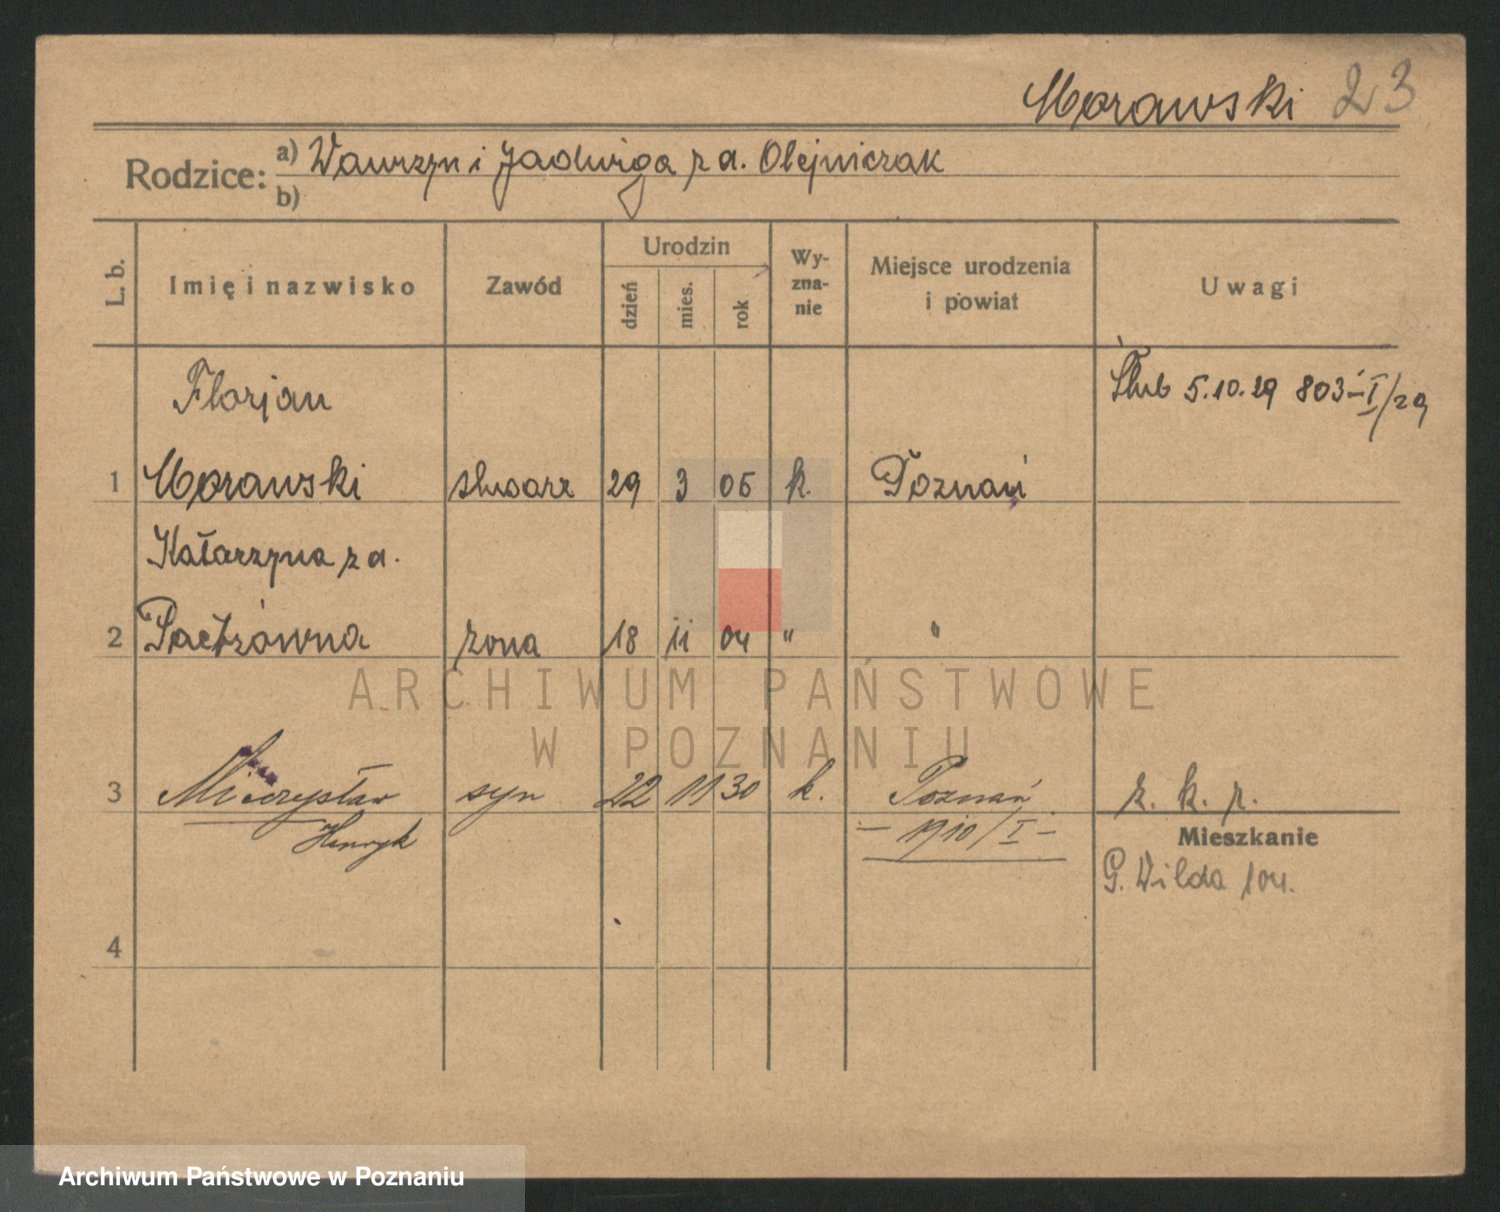 Morawski 23
Rodzice: a) Wawrzyn i Jadwiga z d. Olejniczak
b)
L. b. Imię i nazwisko Zawód Urodzin dzień mies. rok Wyznanie Miejsce urodzenia i powiat Uwagi
Florjan
Ślub 5.10.29 803-I/29
1 Morawski ślusarz 29 3 05 k. Poznań
Katarzyna z d.
2 Pactzówna żona 18 11 04 " "
ARCHIWUM PAŃSTWOWE
W POZNANIU
3 Mieczysław syn 22 11 30 k. Poznań z. k. p.
Henryk - 1910/I -
Mieszkanie
G. Wilda 104.
4
Archiwum Państwowe w Poznaniu